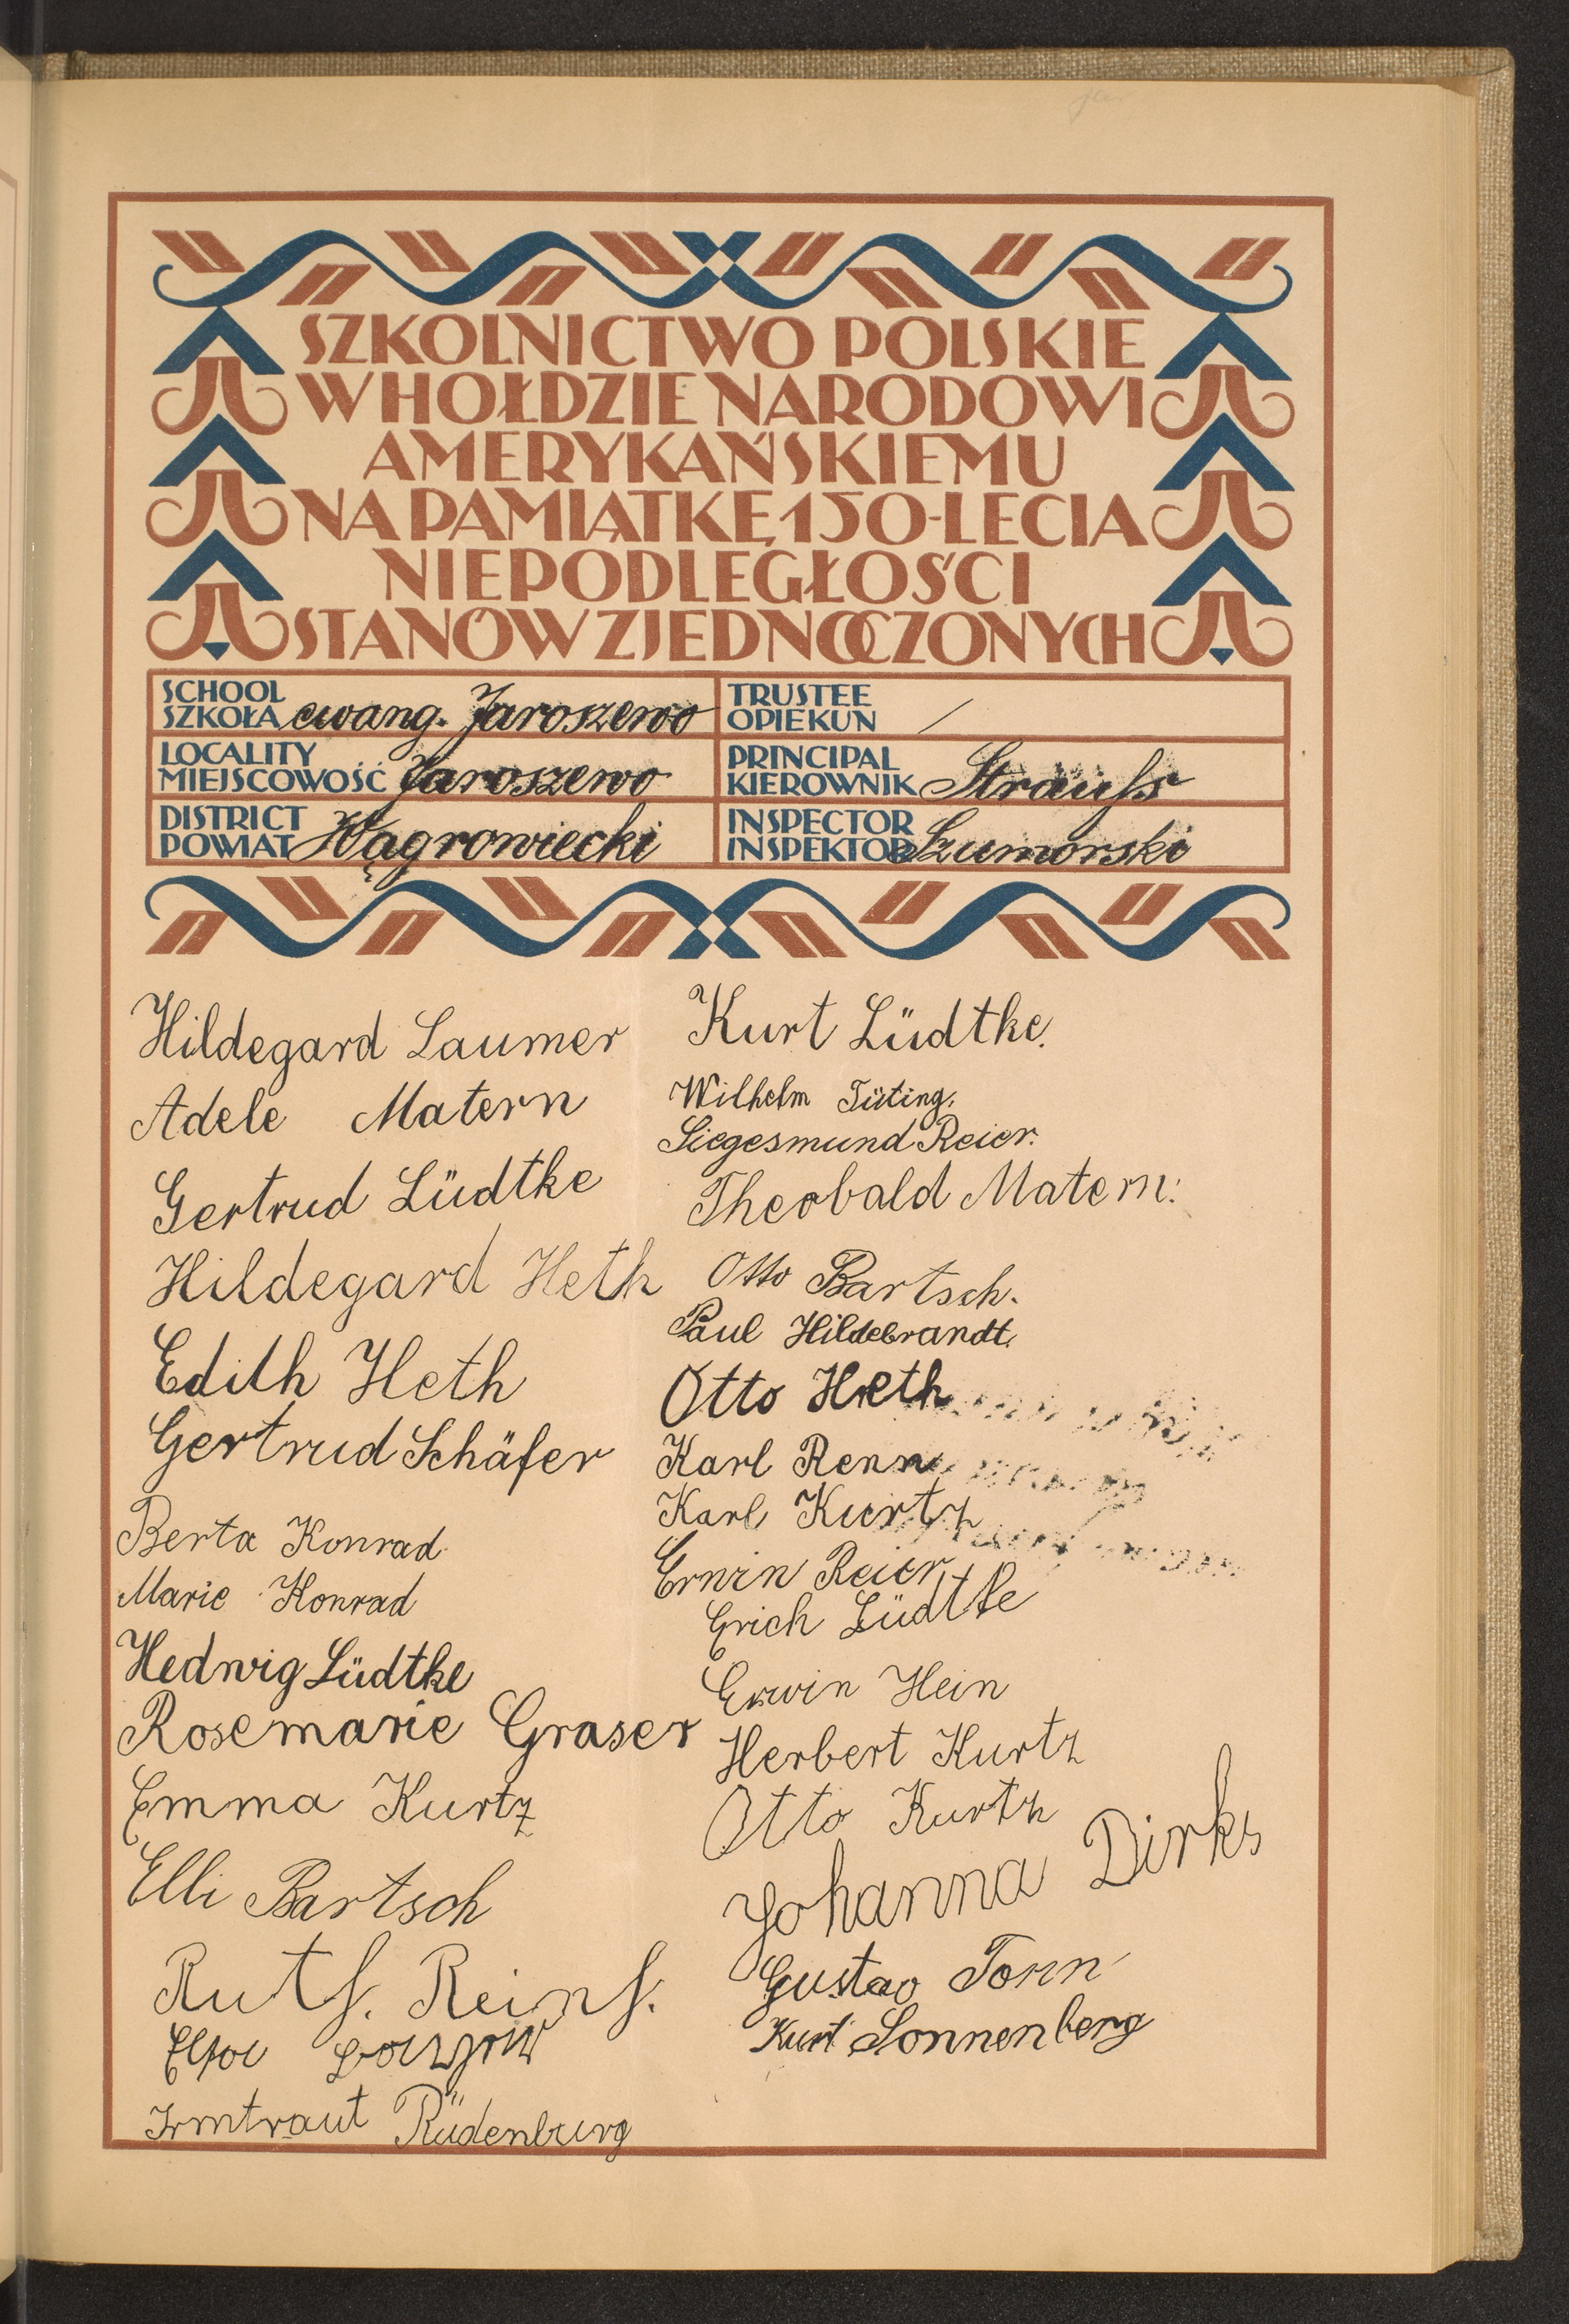 SZKOLNICTWO POLSKIE
W HOŁDZIE NARODOWI
AMERYKAŃSKIEMU
NA PAMIĄTKĘ 150-LECIA
NIEPODLEGŁOŚCI
STANÓW ZJEDNOCZONYCH
SCHOOL
SZKOŁA ewang. Jaroszewo
TRUSTEE
OPIEKUN /
LOCALITY
MIEJSCOWOŚĆ Jaroszewo
PRINCIPAL
KIEROWNIK Strauß
DISTRICT
POWIAT Wągrowiecki
INSPECTOR
INSPEKTOR Szumorski
Hildegard Laumer
Adele Matern
Gertrud Lüdtke
Hildegard Heth
Edith Heth
Gertrud Schäfer
Berta Konrad
Marie Konrad
Hedwig Lüdtke
Rosemarie Graser
Emma Kurtz
Elli Bartsch
Ruth. Reinh.
Irmtraut Rüdenburg
Kurt Lüdtke.
Wilhelm Tüting.
Siegesmund Reier.
Theobald Matern.
Otto Bartsch.
Paul Hildebrandt.
Otto Heth
Karl Renn
Karl Kurtz
Erwin Reier
Erich Lüdtke
Erwin Hein
Herbert Kurtz
Otto Kurtz
Johanna Dirks
Gustav Tonn
Kurt Sonnenberg